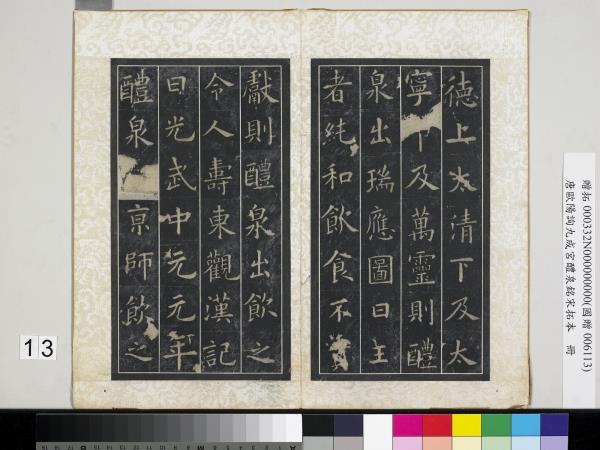 德上太清下及太
寧及萬靈則醴
泉出瑞應圖曰王
者純和飲食不貢
獻則醴泉出飲之
令人壽東觀漢記
曰光武中元元年
醴泉京師飲之
贈拓 000332N000000000(國贈 006113)
唐歐陽詢九成宮醴泉銘宋拓本 冊
13